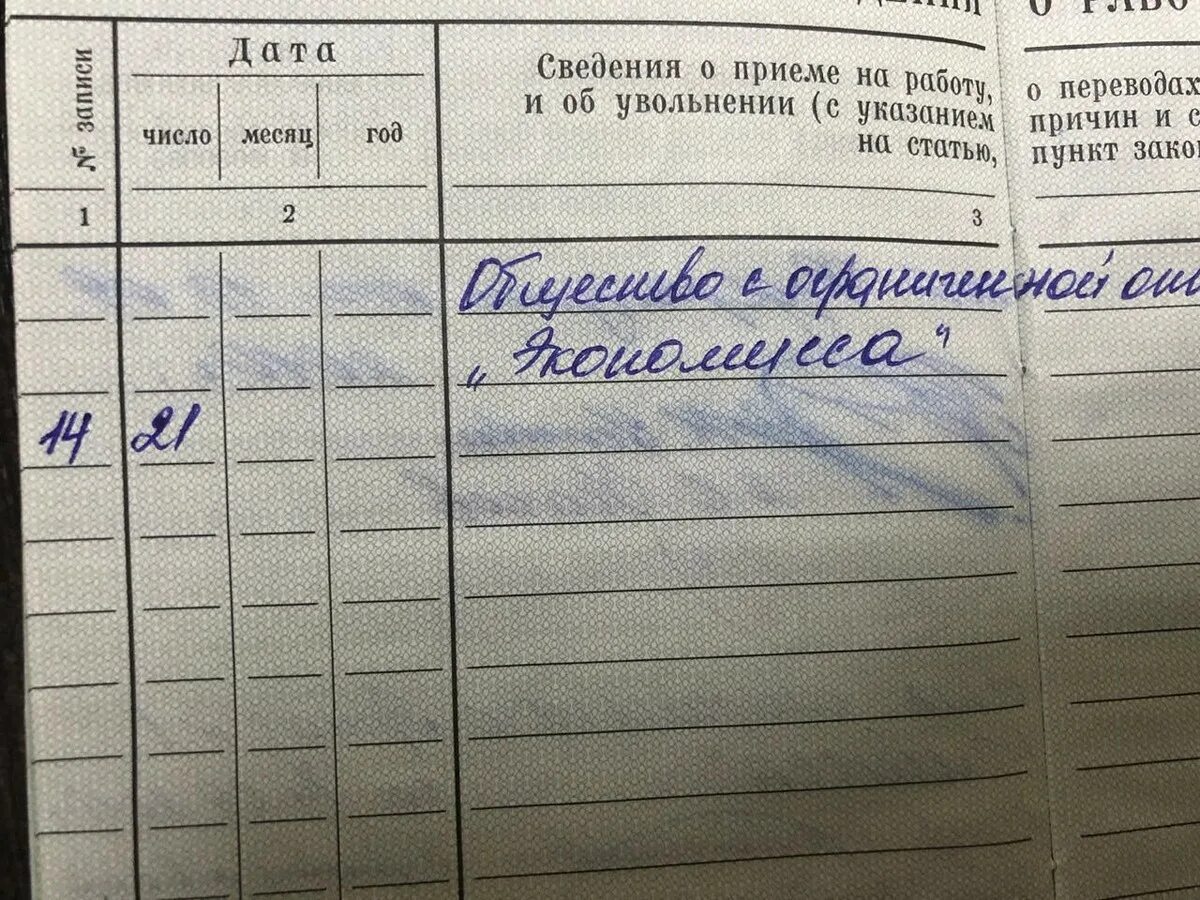 О РАБО
№ записи
Дата
число месяц год
Сведения о приеме на работу, о переводах
и об увольнении (с указанием причин и с
на статью, пункт зако
1 2 3
Общество с ограниченной от
„Экономисса"
14 21